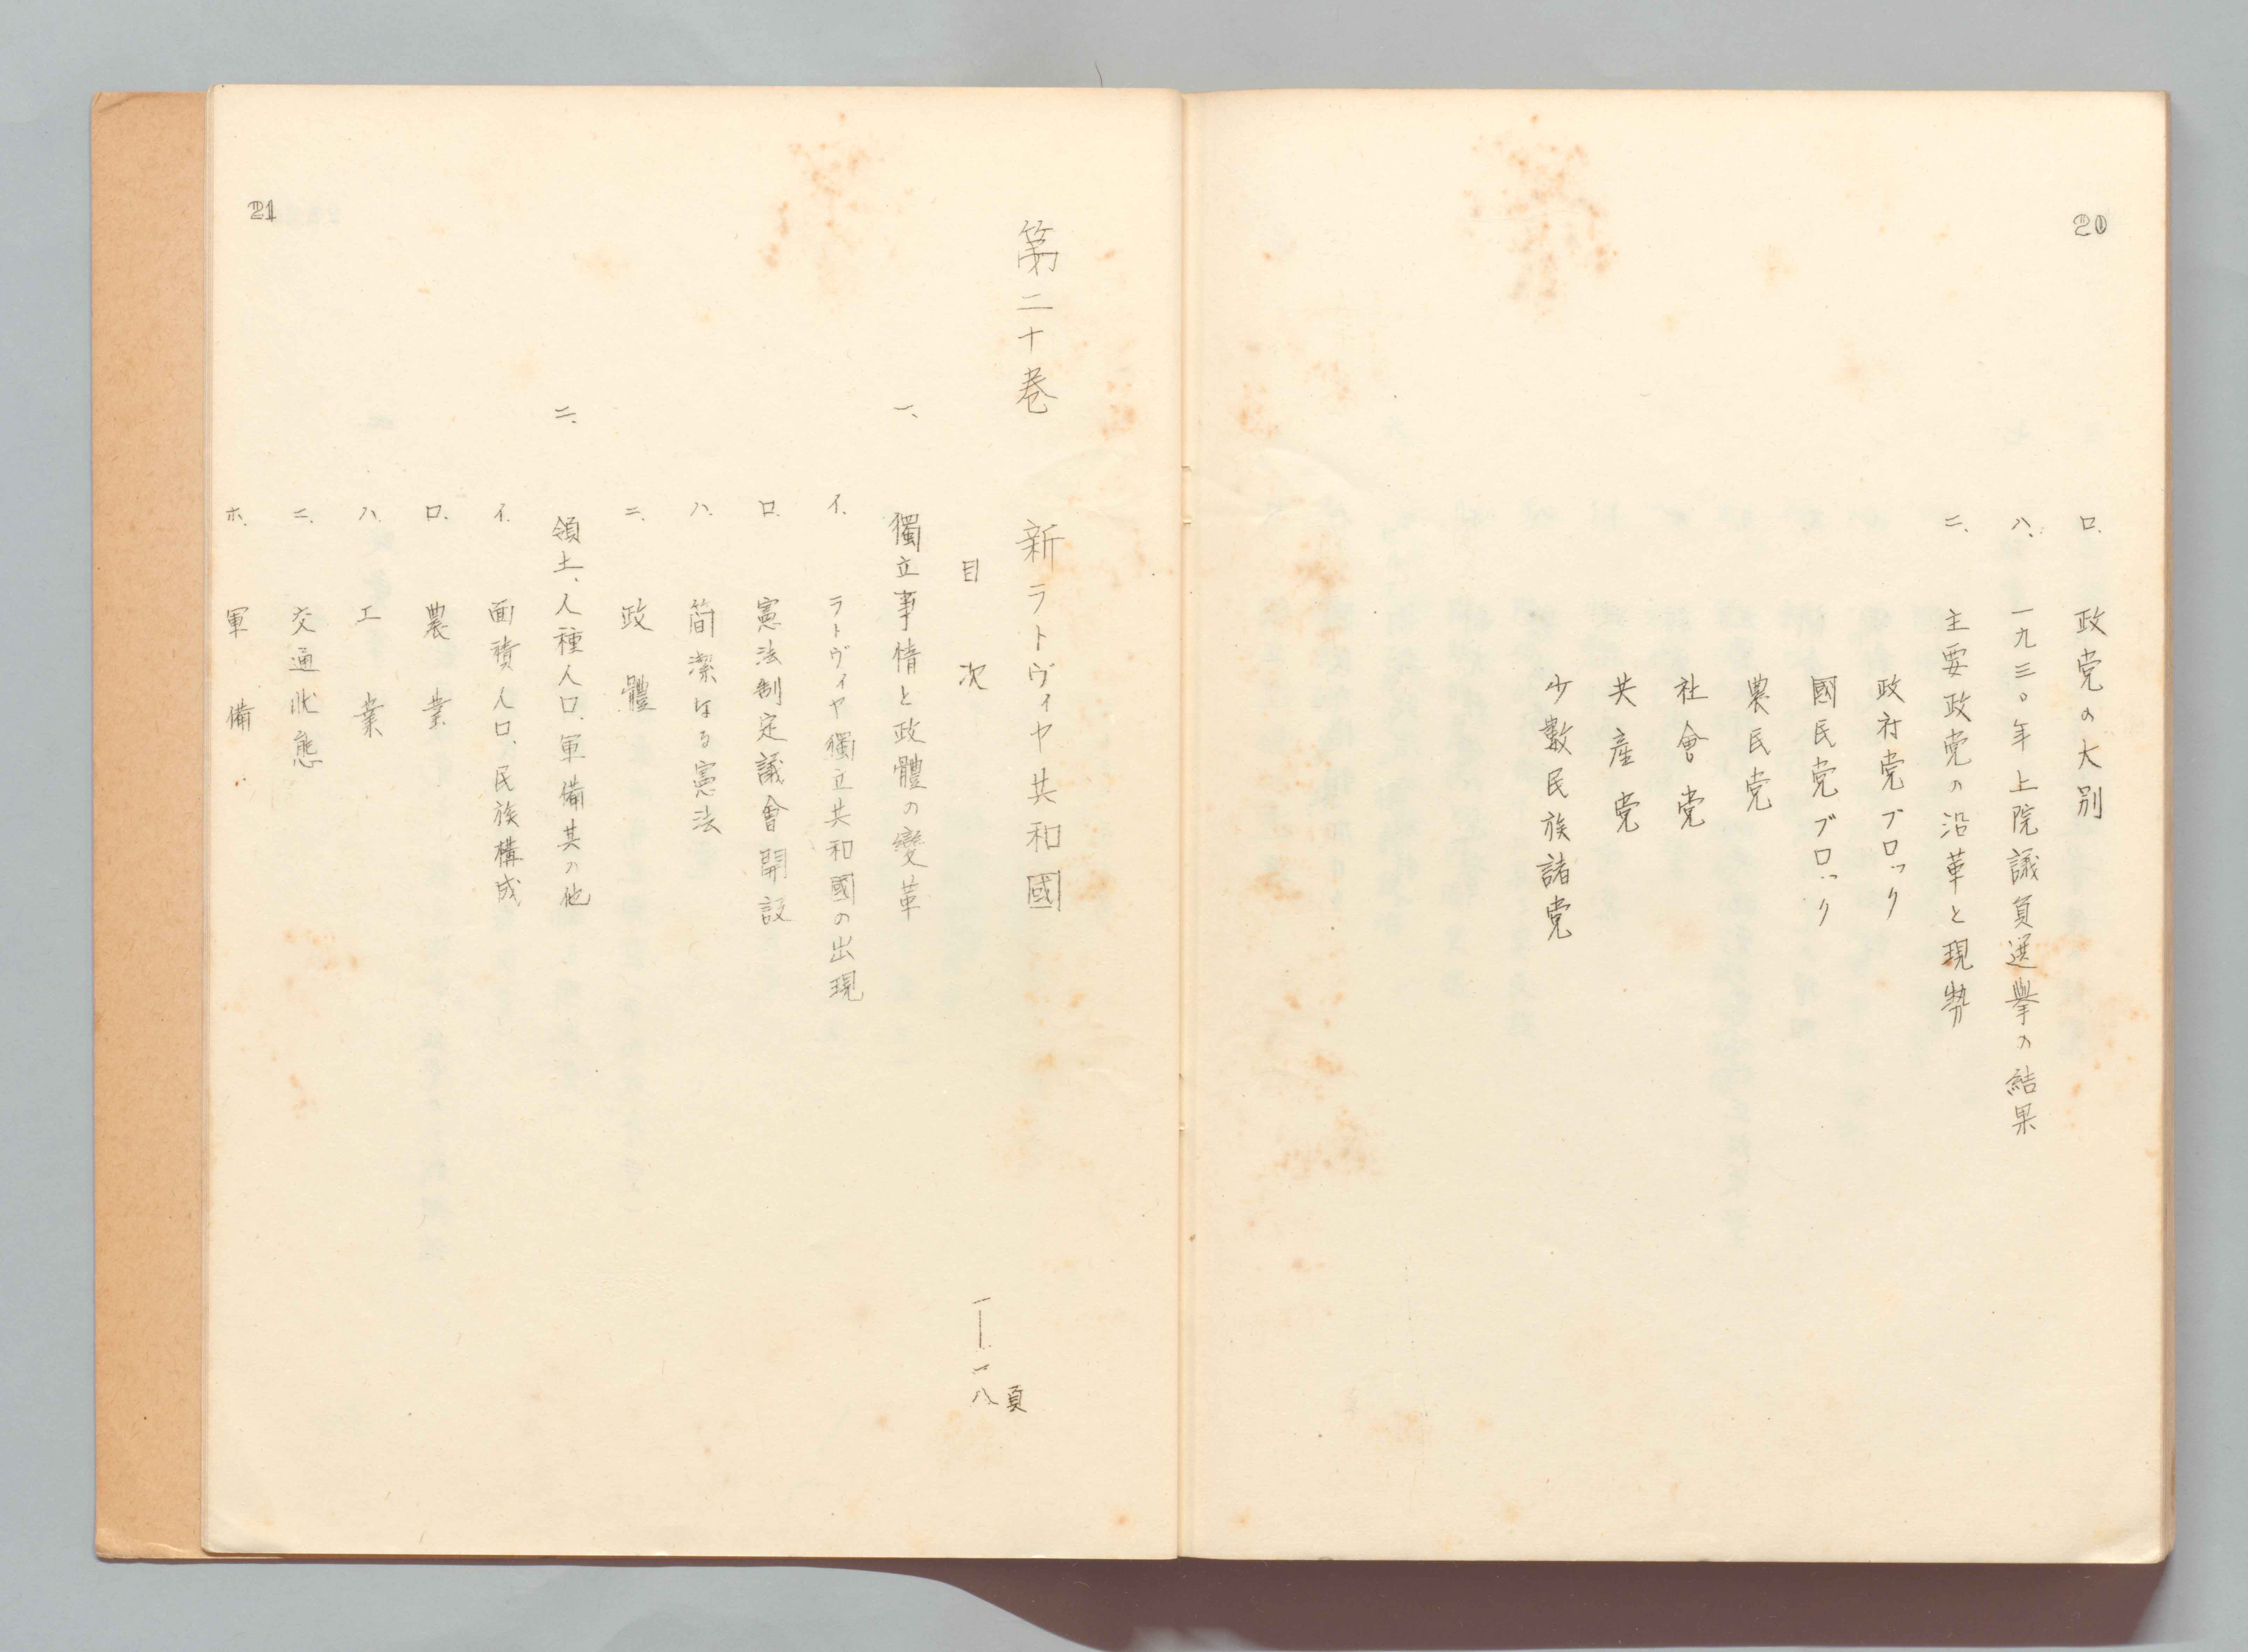 20
ロ、政党の大別
ハ、一九三〇年上院議員選擧の結果
ニ、主要政党の沿革と現勢
政府党ブロック
國民党ブロック
農民党
社會党
共産党
少數民族諸党
第二十巻 新ラトヴィヤ共和國
目次 一—一八頁
一、獨立事情と政體の變革
イ、ラトヴィヤ獨立共和國の出現
ロ、憲法制定議會開設
ハ、簡潔なる憲法
ニ、政體
二、領土、人種人口、軍備其の他
イ、面積人口、民族構成
ロ、農業
ハ、工業
ニ、交通状態
ホ、軍備
21